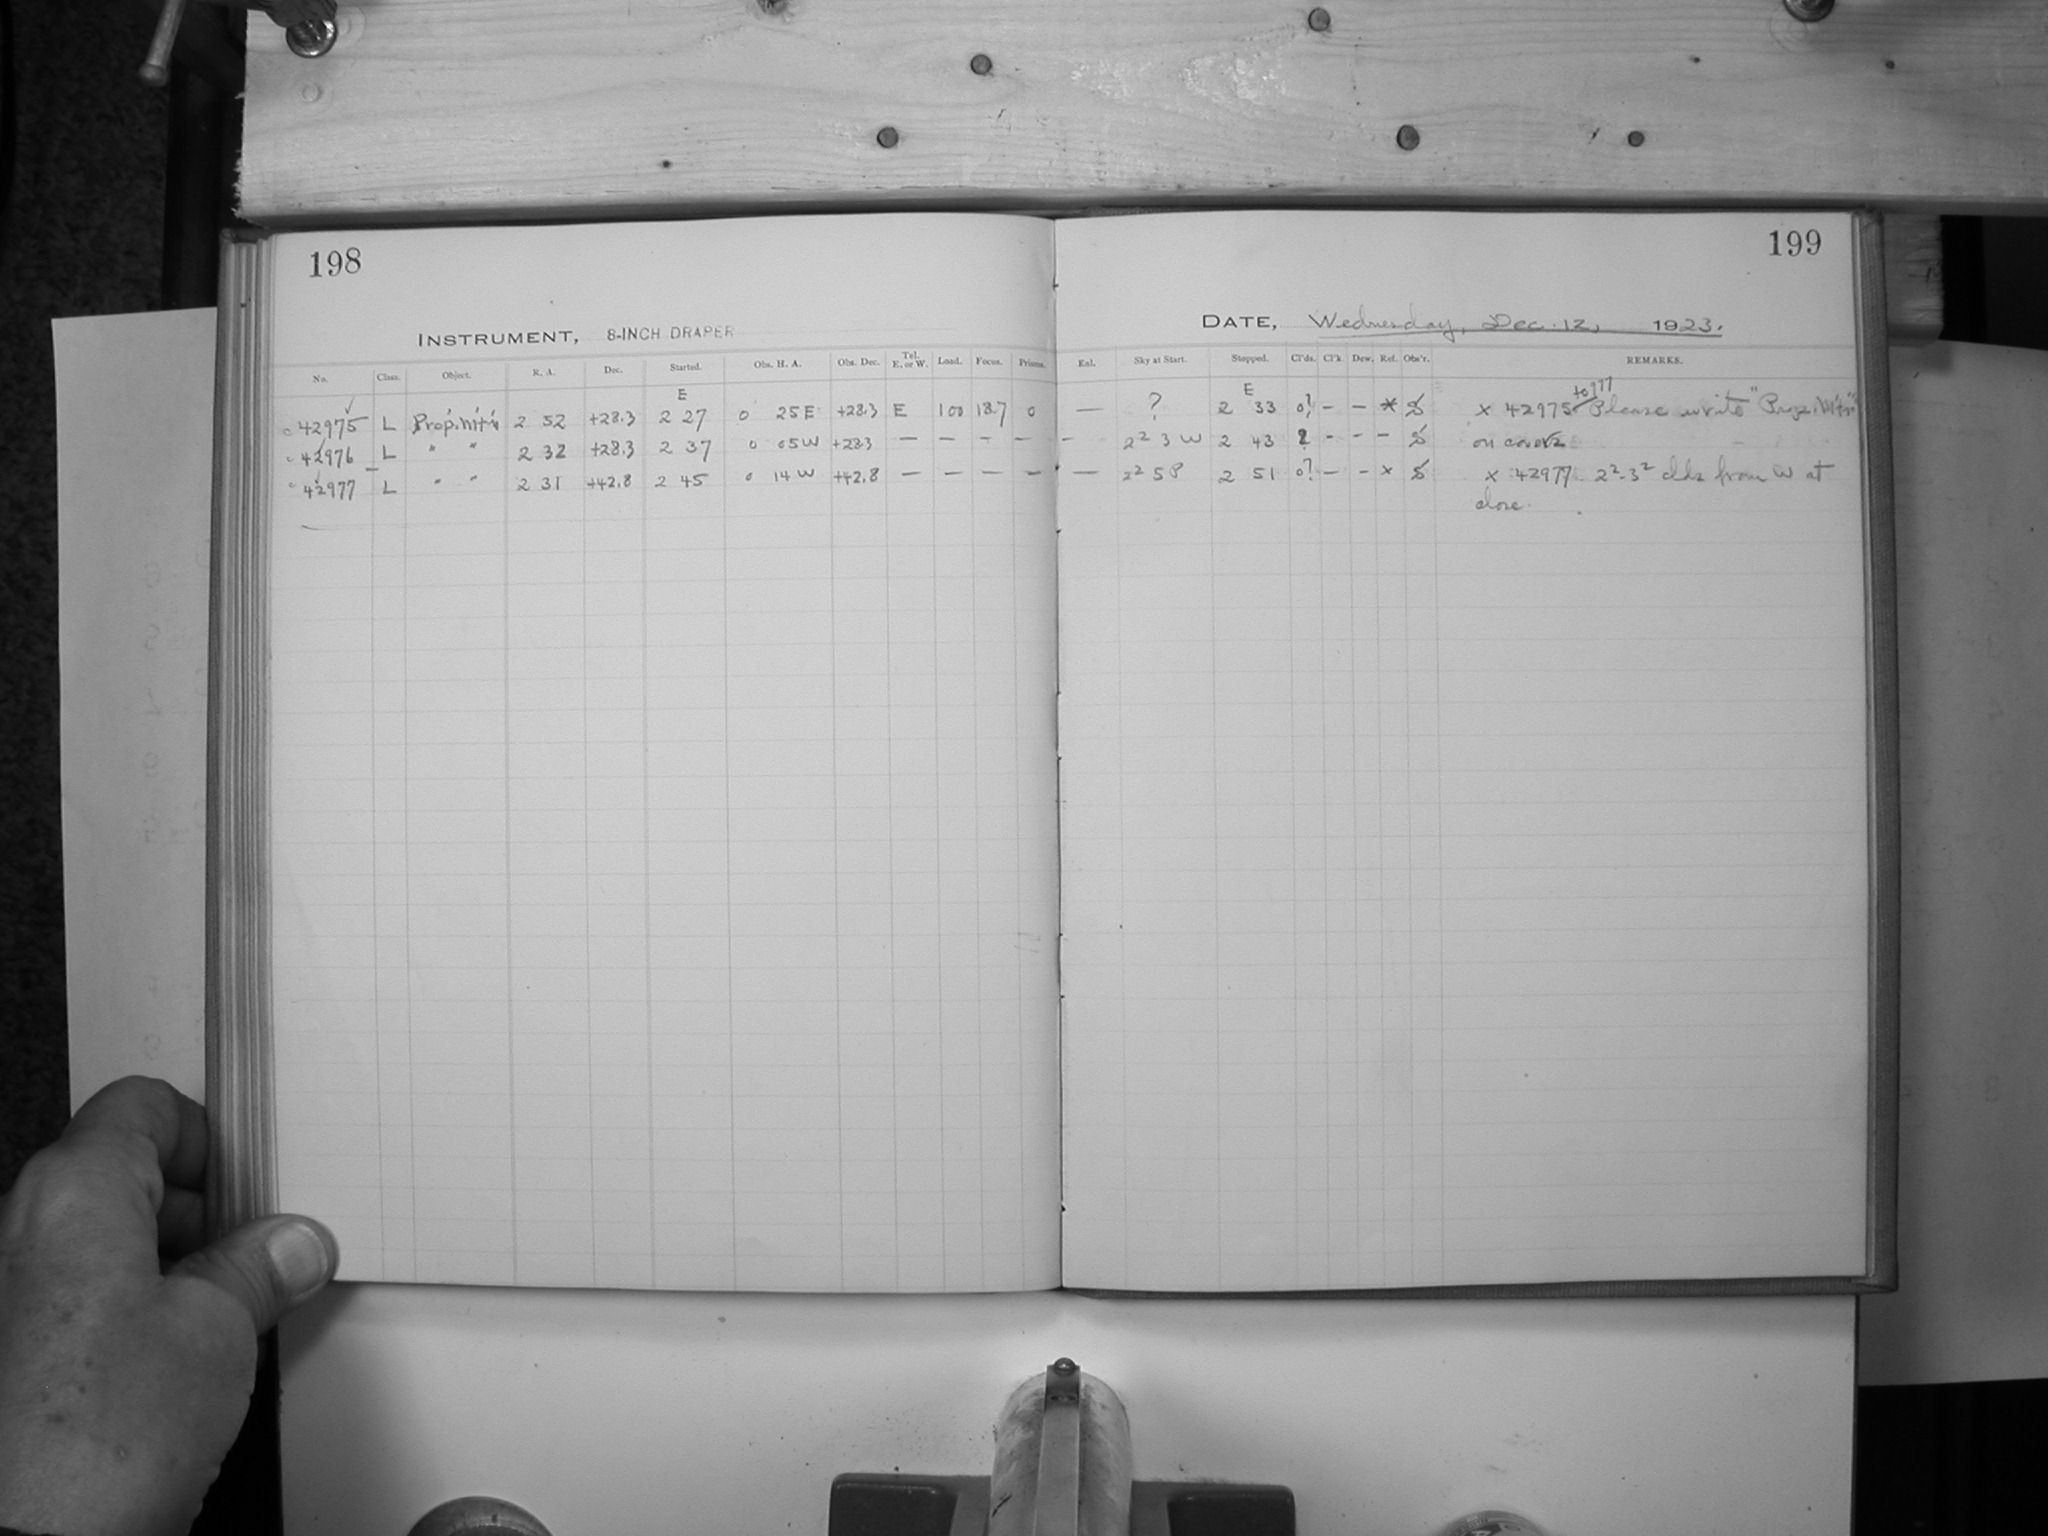 198
199
INSTRUMENT, 8-INCH DRAPER
DATE, Wednesday, Dec. 12, 1923.
No. Class. Object. R. A. Dec. Started. Obs. H. A. Obs. Dec. Tel. E. or W. Load. Focus. Prisms. Enl. Sky at Start. Stopped. Cl'ds. Cl'k Dew. Ref. Obs'r. REMARKS.
E E
42975 L 2 52 +28.3 2 27 0 25 E +28.3 E 100 18.7 0 — ? 2 33 0? - - * x 42975 to 977 Please write
42976 L " " 2 32 +28.3 2 37 0 05 W +28.3 — — — — — - 2² 3 W 2 43 ? - - - on covers
42977 L " " 2 31 +42.8 2 45 0 14 W +42.8 — — — — — — 2² 5 P 2 51 0? - - x x 42977 2²-3² clds from W at
close.